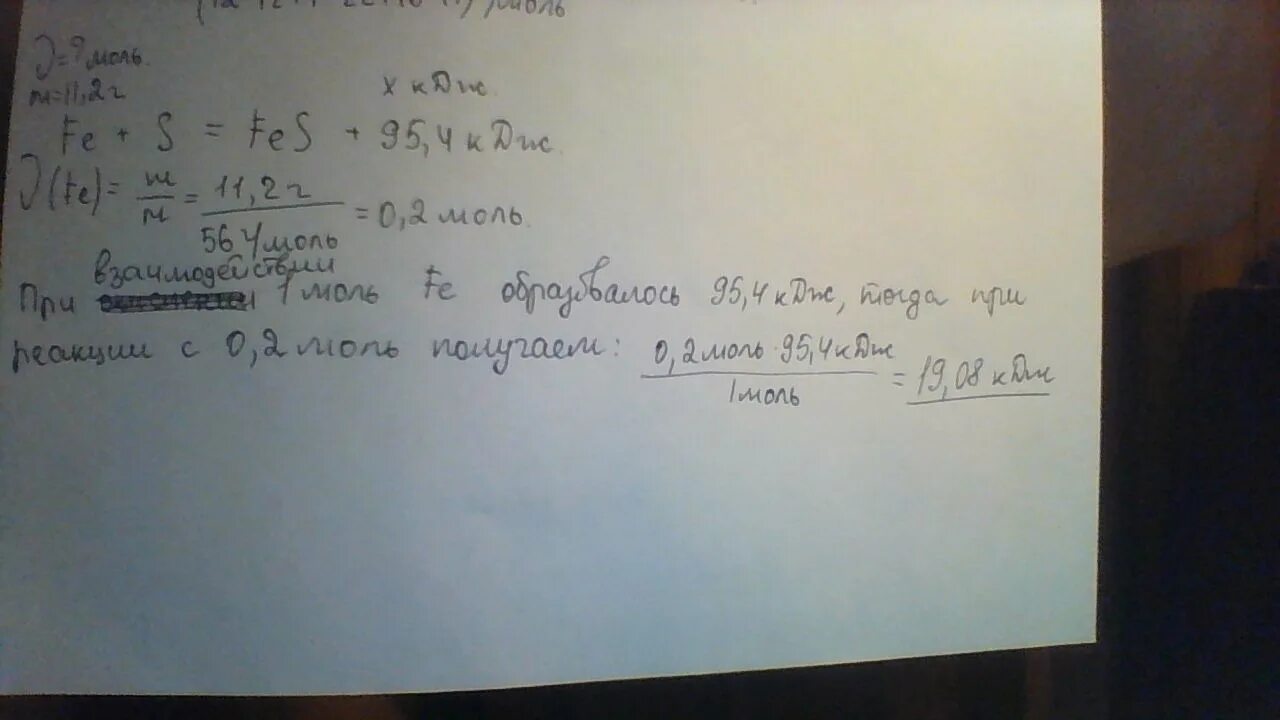 моль
ν=? моль.
m=11,2 г
x кДж.
Fe + S = FeS + 95,4 кДж.
ν(Fe) = m/M = 11,2 г / 56 г/моль = 0,2 моль.
взаимодействии
При 1 моль Fe образовалось 95,4 кДж, тогда при
реакции с 0,2 моль получаем: 0,2 моль · 95,4 кДж / 1 моль = 19,08 кДж